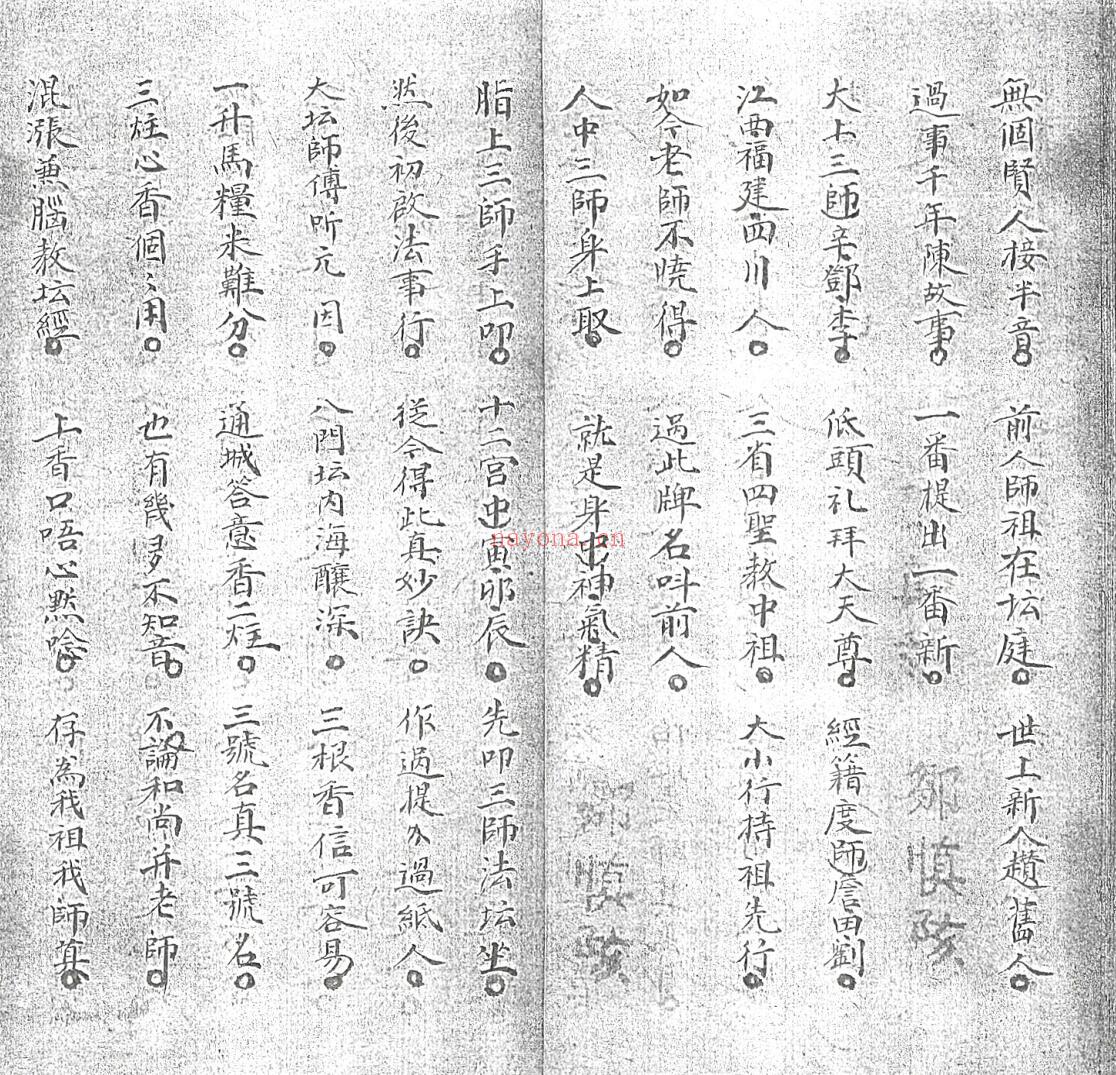 無個賢人接半音。前人師祖在坛庭。世上新人趲舊人。
過事千年陳故事。一番提出一番新。
大上三師辛鄧李。低頭礼拜大天尊。經籍度師詹田劉。
江西福建四川人。三省四聖教中祖。大小行持祖先行。
如今老師不曉得。過此牌名呌前人。
人中三師身上取。就是身中神氣精。
脂上三師手上叩。十二宫中寅卯辰。先叩三師法坛坐。
然後初啟法事行。從今得此真妙訣。作過提水過紙人。
大坛師傅听元因。八門坛内海釀深。三根香信可容易。
一升馬糧米難分。通城答意香二炷。三號名真三號名。
三炷心香個〻用。也有幾多不知音。不論和尚并老師。
混漲兼腦教坛經。上香口唔心黙唸。存為我祖我師真。
鄒慎
鄒慎
nayona.cn